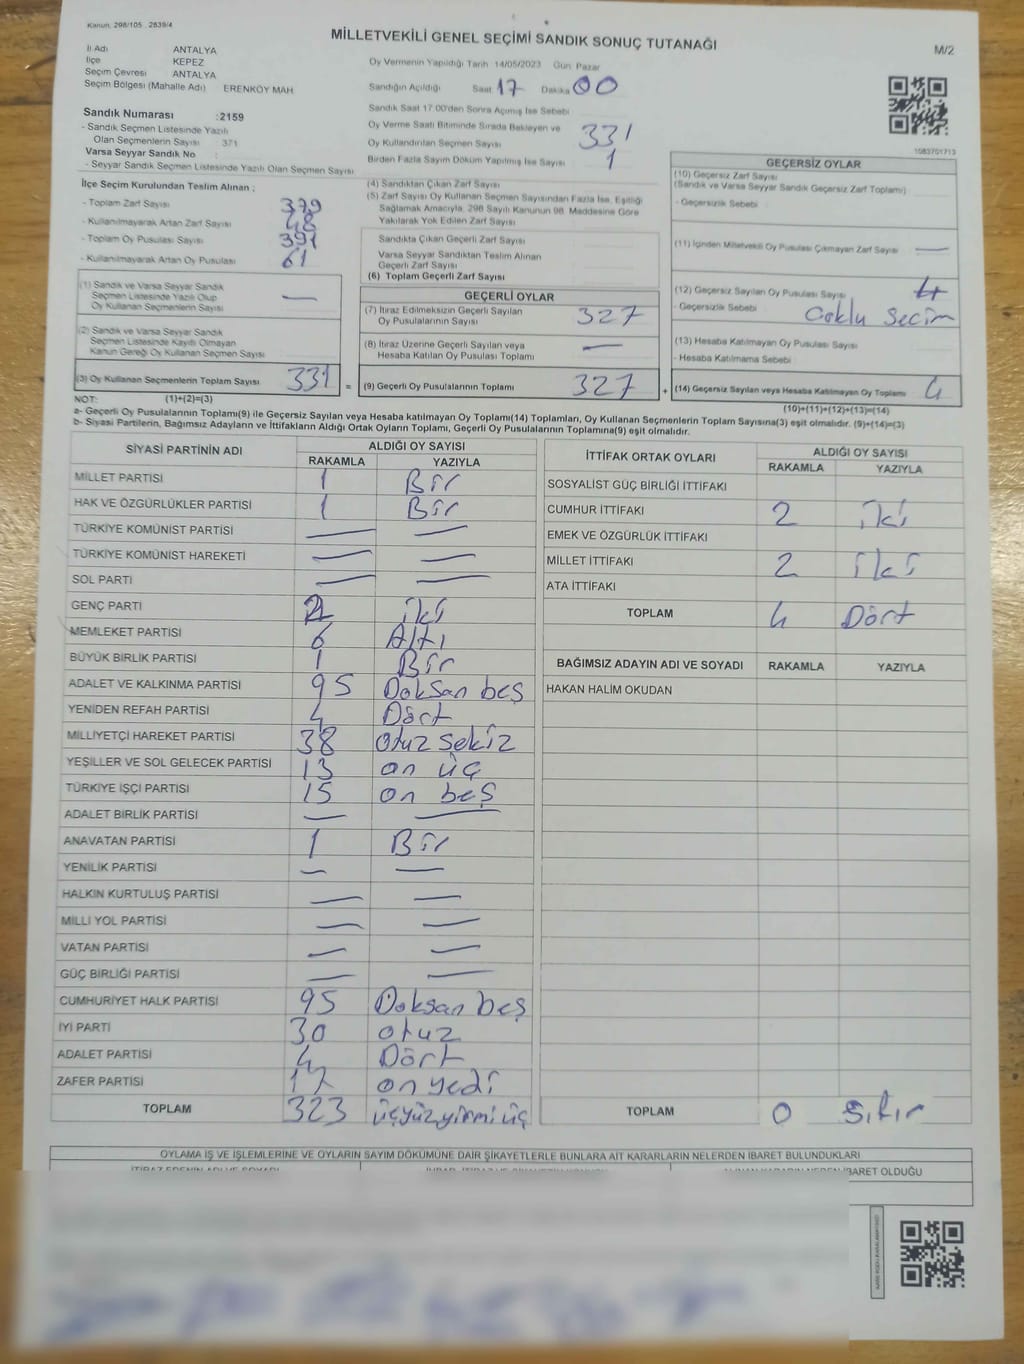 Kanun: 298/105 , 2839/4
MİLLETVEKİLİ GENEL SEÇİMİ SANDIK SONUÇ TUTANAĞI
M/2
İl Adı ANTALYA
İlçe KEPEZ
Seçim Çevresi ANTALYA
Seçim Bölgesi (Mahalle Adı) ERENKÖY MAH
Oy Vermenin Yapıldığı Tarih 14/05/2023 Gün Pazar
Sandığın Açıldığı Saat 17 Dakika 00
Sandık Saat 17.00'den Sonra Açılmış İse Sebebi
Sandık Numarası : 2159
- Sandık Seçmen Listesinde Yazılı
Olan Seçmenlerin Sayısı : 371
Varsa Seyyar Sandık No :
- Seyyar Sandık Seçmen Listesinde Yazılı Olan Seçmen Sayısı
Oy Verme Saati Bitiminde Sırada Bekleyen ve
Oy Kullandırılan Seçmen Sayısı 331
Birden Fazla Sayım Döküm Yapılmış İse Sayısı 1
1083701713
İlçe Seçim Kurulundan Teslim Alınan ;
- Toplam Zarf Sayısı 379
- Kullanılmayarak Artan Zarf Sayısı 48
- Toplam Oy Pusulası Sayısı 391
- Kullanılmayarak Artan Oy Pusulası 61
(1) Sandık ve Varsa Seyyar Sandık
Seçmen Listesinde Yazılı Olup
Oy Kullanan Seçmenlerin Sayısı —
(2) Sandık ve Varsa Seyyar Sandık
Seçmen Listesinde Kayıtlı Olmayan
Kanun Gereği Oy Kullanan Seçmen Sayısı
(3) Oy Kullanan Seçmenlerin Toplam Sayısı 331 =
(4) Sandıktan Çıkan Zarf Sayısı
(5) Zarf Sayısı Oy Kullanan Seçmen Sayısından Fazla İse, Eşitliği
Sağlamak Amacıyla, 298 Sayılı Kanunun 98. Maddesine Göre
Yakılarak Yok Edilen Zarf Sayısı
Sandıkta Çıkan Geçerli Zarf Sayısı
Varsa Seyyar Sandıktan Teslim Alınan
Geçerli Zarf Sayısı
(6) Toplam Geçerli Zarf Sayısı
GEÇERLİ OYLAR
(7) İtiraz Edilmeksizin Geçerli Sayılan
Oy Pusulalarının Sayısı 327
(8) İtiraz Üzerine Geçerli Sayılan veya
Hesaba Katılan Oy Pusulası Toplamı —
(9) Geçerli Oy Pusulalarının Toplamı 327 +
GEÇERSİZ OYLAR
(10) Geçersiz Zarf Sayısı
(Sandık ve Varsa Seyyar Sandık Geçersiz Zarf Toplamı)
- Geçersizlik Sebebi
(11) İçinden Milletvekili Oy Pusulası Çıkmayan Zarf Sayısı —
(12) Geçersiz Sayılan Oy Pusulası Sayısı 4
- Geçersizlik Sebebi Coklu Secim
(13) Hesaba Katılmayan Oy Pusulası Sayısı
- Hesaba Katılmama Sebebi
(14) Geçersiz Sayılan veya Hesaba Katılmayan Oy Toplamı 4
NOT: (1)+(2)=(3)
(10)+(11)+(12)+(13)=(14)
a- Geçerli Oy Pusulalarının Toplamı(9) ile Geçersiz Sayılan veya Hesaba katılmayan Oy Toplamı(14) Toplamları, Oy Kullanan Seçmenlerin Toplam Sayısına(3) eşit olmalıdır. (9)+(14)=(3)
b- Siyasi Partilerin, Bağımsız Adayların ve İttifakların Aldığı Ortak Oyların Toplamı, Geçerli Oy Pusulalarının Toplamına(9) eşit olmalıdır.
SİYASİ PARTİNİN ADI ALDIĞI OY SAYISI
RAKAMLA YAZIYLA
MİLLET PARTİSİ 1 Bir
HAK VE ÖZGÜRLÜKLER PARTİSİ 1 Bir
TÜRKİYE KOMÜNİST PARTİSİ — —
TÜRKİYE KOMÜNİST HAREKETİ — —
SOL PARTİ — —
GENÇ PARTİ 2 iki
MEMLEKET PARTİSİ 6 Altı
BÜYÜK BİRLİK PARTİSİ 1 Bir
ADALET VE KALKINMA PARTİSİ 95 Doksan beş
YENİDEN REFAH PARTİSİ 4 Dört
MİLLİYETÇİ HAREKET PARTİSİ 38 otuz sekiz
YEŞİLLER VE SOL GELECEK PARTİSİ 13 on üç
TÜRKİYE İŞÇİ PARTİSİ 15 on beş
ADALET BİRLİK PARTİSİ — —
ANAVATAN PARTİSİ 1 Bir
YENİLİK PARTİSİ — —
HALKIN KURTULUŞ PARTİSİ — —
MİLLİ YOL PARTİSİ — —
VATAN PARTİSİ — —
GÜÇ BİRLİĞİ PARTİSİ — —
CUMHURİYET HALK PARTİSİ 95 Doksan beş
İYİ PARTİ 30 otuz
ADALET PARTİSİ 4 Dört
ZAFER PARTİSİ 17 on yedi
TOPLAM 323 üçyüzyirmi üç
İTTİFAK ORTAK OYLARI ALDIĞI OY SAYISI
RAKAMLA YAZIYLA
SOSYALİST GÜÇ BİRLİĞİ İTTİFAKI
CUMHUR İTTİFAKI 2 iki
EMEK VE ÖZGÜRLÜK İTTİFAKI
MİLLET İTTİFAKI 2 iki
ATA İTTİFAKI
TOPLAM 4 Dört
BAĞIMSIZ ADAYIN ADI VE SOYADI RAKAMLA YAZIYLA
HAKAN HALİM OKUDAN
TOPLAM 0 Sıfır
OYLAMA İŞ VE İŞLEMLERİNE VE OYLARIN SAYIM DÖKÜMÜNE DAİR ŞİKAYETLERLE BUNLARA AİT KARARLARIN NELERDEN İBARET BULUNDUKLARI
İBARET OLDUĞU